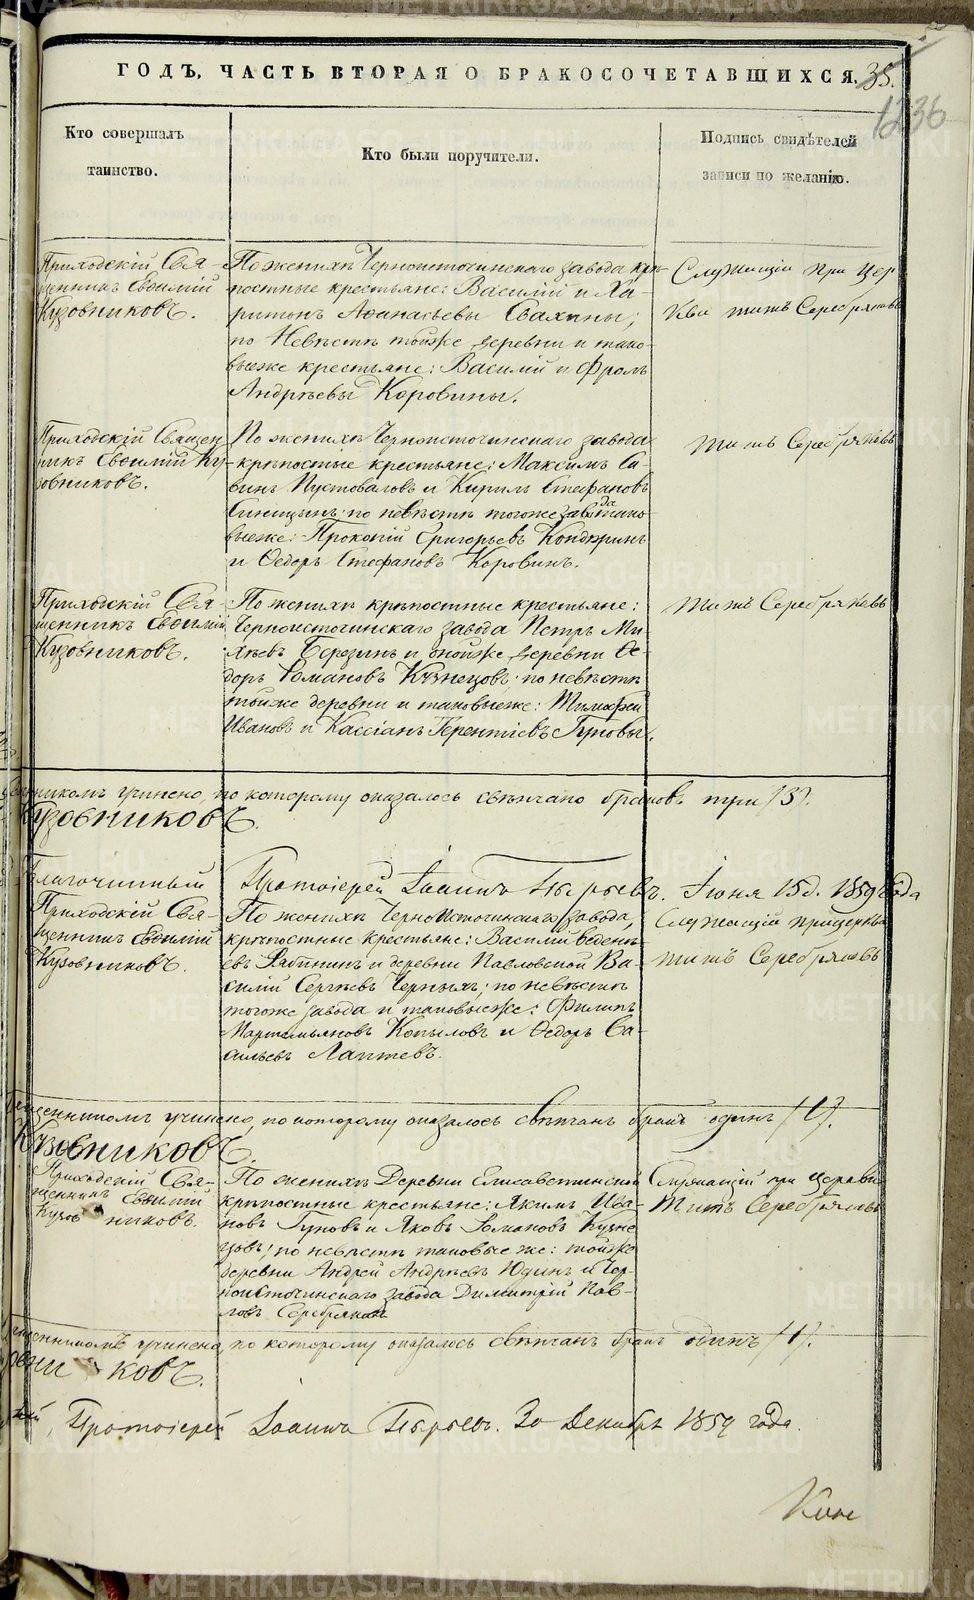 ГОДЪ, ЧАСТЬ ВТОРАЯ О БРАКОСОЧЕТАВШИХСЯ.
35.
1236
Кто совершалъ
таинство.
Кто были поручители.
Подпись свидѣтелей
записи по желанію.
Приходскій Свя-
щенникъ Евѳимій
Кузовниковъ.
По женихѣ Черноисточинскаго завода крѣ-
постные крестьяне: Василій и Ха-
ритонъ Аѳанасьевы
по Невѣстѣ тойже деревни и тако-
выеже крестьяне: Василій и Фролъ
Андреевы Коровины.
Служащій при Цер
кви Титъ Серебряковъ
Приходскій Священ
никъ Евѳимій Ку-
зовниковъ.
По женихѣ Черноисточинскаго завода
крѣпостные крестьяне: Максимъ Са-
винъ Пустоваловъ и Кирилъ Стефановъ
Синицынъ; по невѣстѣ тогоже завода тако
выеже: Прокопій Григорьевъ Кондюринъ
и Ѳедоръ Стефановъ Коровинъ.
Титъ Серебряковъ
Приходскій Свя-
щенникъ Евѳимій
Кузовниковъ.
По женихѣ крѣпостные крестьяне:
Черноисточинскаго завода Петръ Ми-
хѣевъ Березинъ и тойже деревни Ѳе-
доръ Романовъ Кузнецовъ; по невѣстѣ
тойже деревни и таковыеже: Тимофей
Ивановъ и Кассіанъ Терентіевъ Гуновы.
Титъ Серебряковъ
щенникомъ учинено, по которому оказалось свѣнчано браковъ три /3/.
Кузовниковъ.
Благочинный Протоіерей Іоаннъ Пырьевъ. Іюня 15 д. 1859 года
Приходскій Свя-
щенникъ Евѳимій
Кузовниковъ.
По женихѣ Черноисточинскаго завода,
крѣпостные крестьяне: Василій Веденѣ-
евъ Рябининъ и деревни Павловской Ва-
силій Сергѣевъ Черныхъ; по невѣстѣ
тогоже завода и таковыеже: Филипъ
Мартемьяновъ Копыловъ и Ѳедоръ Ва-
сильевъ Лаптевъ.
Служащій прицеркви
Титъ Серебряковъ
щенникомъ учинено, по которому оказалось свѣнчанъ бракъ одинъ /1/.
Кузовниковъ.
Приходскій Свя-
щенникъ Евѳимій
Кузовниковъ.
По женихѣ Деревни Елисаветинской
крѣпостные крестьяне: Акимъ Ива-
новъ Гуновъ и Яковъ Романовъ Кузне
цовъ; по невѣстѣ таковые же: тойже
деревни Андрей Андреевъ Юдинъ и Чер-
ноисточинскаго завода Димитрій Пав-
ловъ Серебряковъ
Служащій при церкви
Титъ Серебряковъ
щенникомъ учинено, по которому оказалось свѣнчанъ бракъ одинъ /1/.
ковъ.
Протоіерей Іоаннъ Пырьевъ. 30 Декабря 1859 года.
METRIKI.GASO-URAL.RU